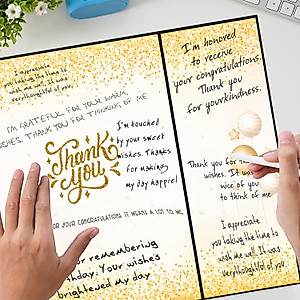 I appreciate
you taking the time to
wish me well. It was
very thoughtful of you!
I'M GRATEFUL FOR YOUR WARM
WISHES. THANK YOU FOR THINKING OF ME
Thank
you
I'm touched
by your sweet
wishes. Thanks
for making
my day happie!
FOR YOUR CONGRATULATIONS. IT MEANS A LOT TO ME
our remembering
thday. Your wishes
brightened my day
I'm honored
to receive
your congratulations.
Thank you
for yourkindness.
Thank you for the
wishes. It was
nice of you
to think of me
I appreciate
you taking the time to
wish me well. It was
very thoughtful of you!